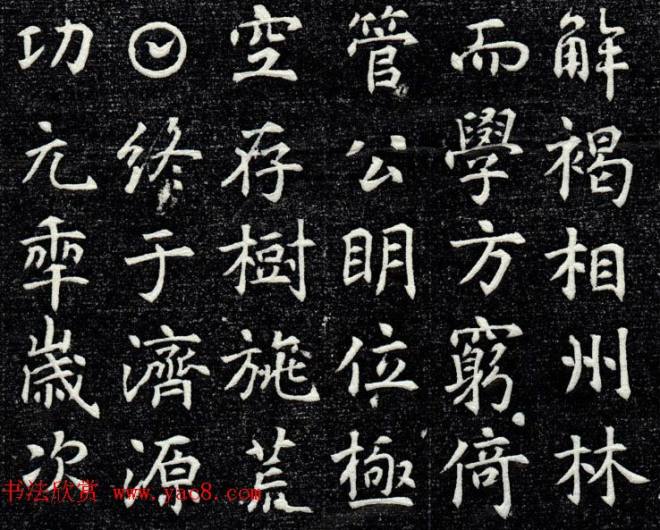 解褐相州林
而學方窮倚
管公眀位極
空存樹施荒
𡆠終于濟源
功元年歲次
书法欣赏 www.yac8.com